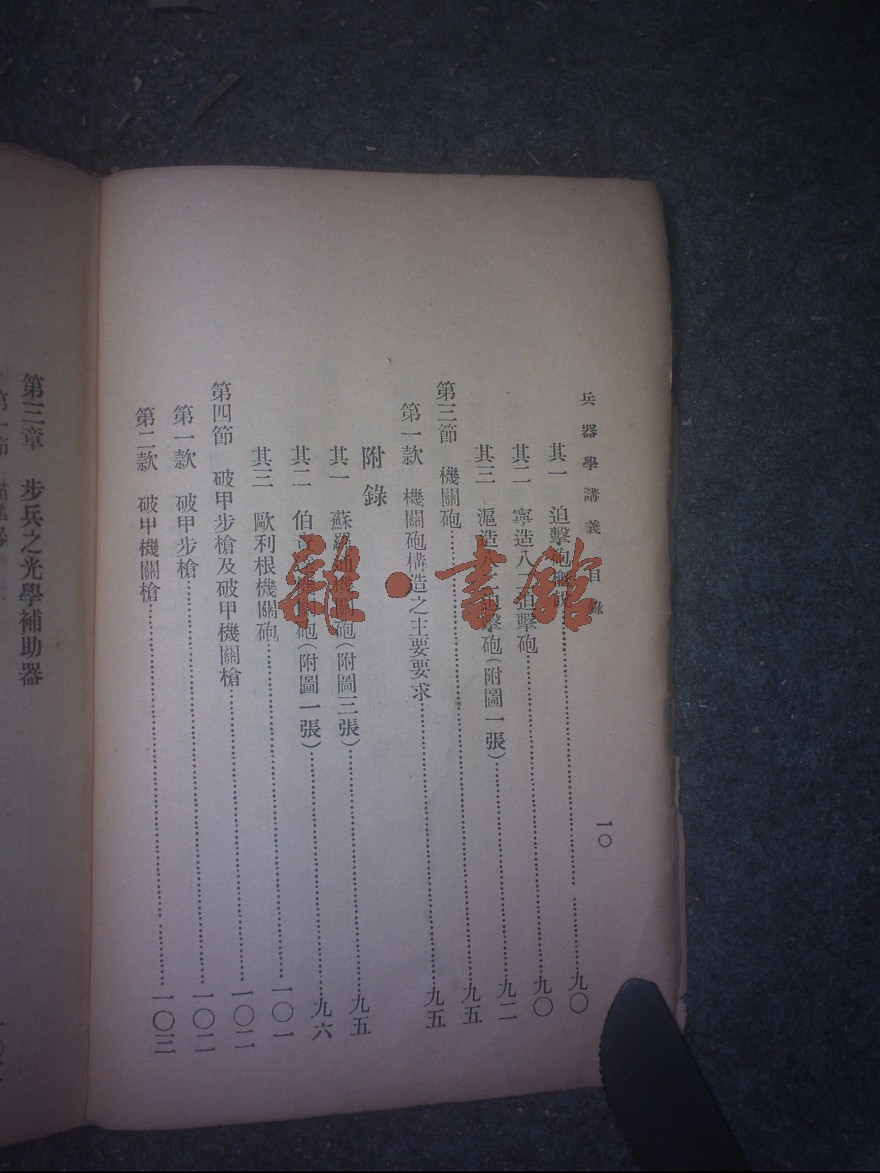 兵器學講義目錄
一〇
其一 迫擊砲概説……九〇
其二 寧造八二迫擊砲……九〇
其三 滬造八二迫擊砲(附圖一張)……九二
第三節 機關砲……九五
第一款 機關砲構造之主要要求……九五
附錄
其一 蘇羅通機關砲(附圖三張)……九五
其二 伯 機關砲(附圖一張)……九六
其三 歐利根機關砲……一〇一
第四節 破甲步槍及破甲機關槍……一〇二
第一款 破甲步槍……一〇二
第二款 破甲機關槍……一〇三
第三章 步兵之光學補助器
第一節
雜·書館